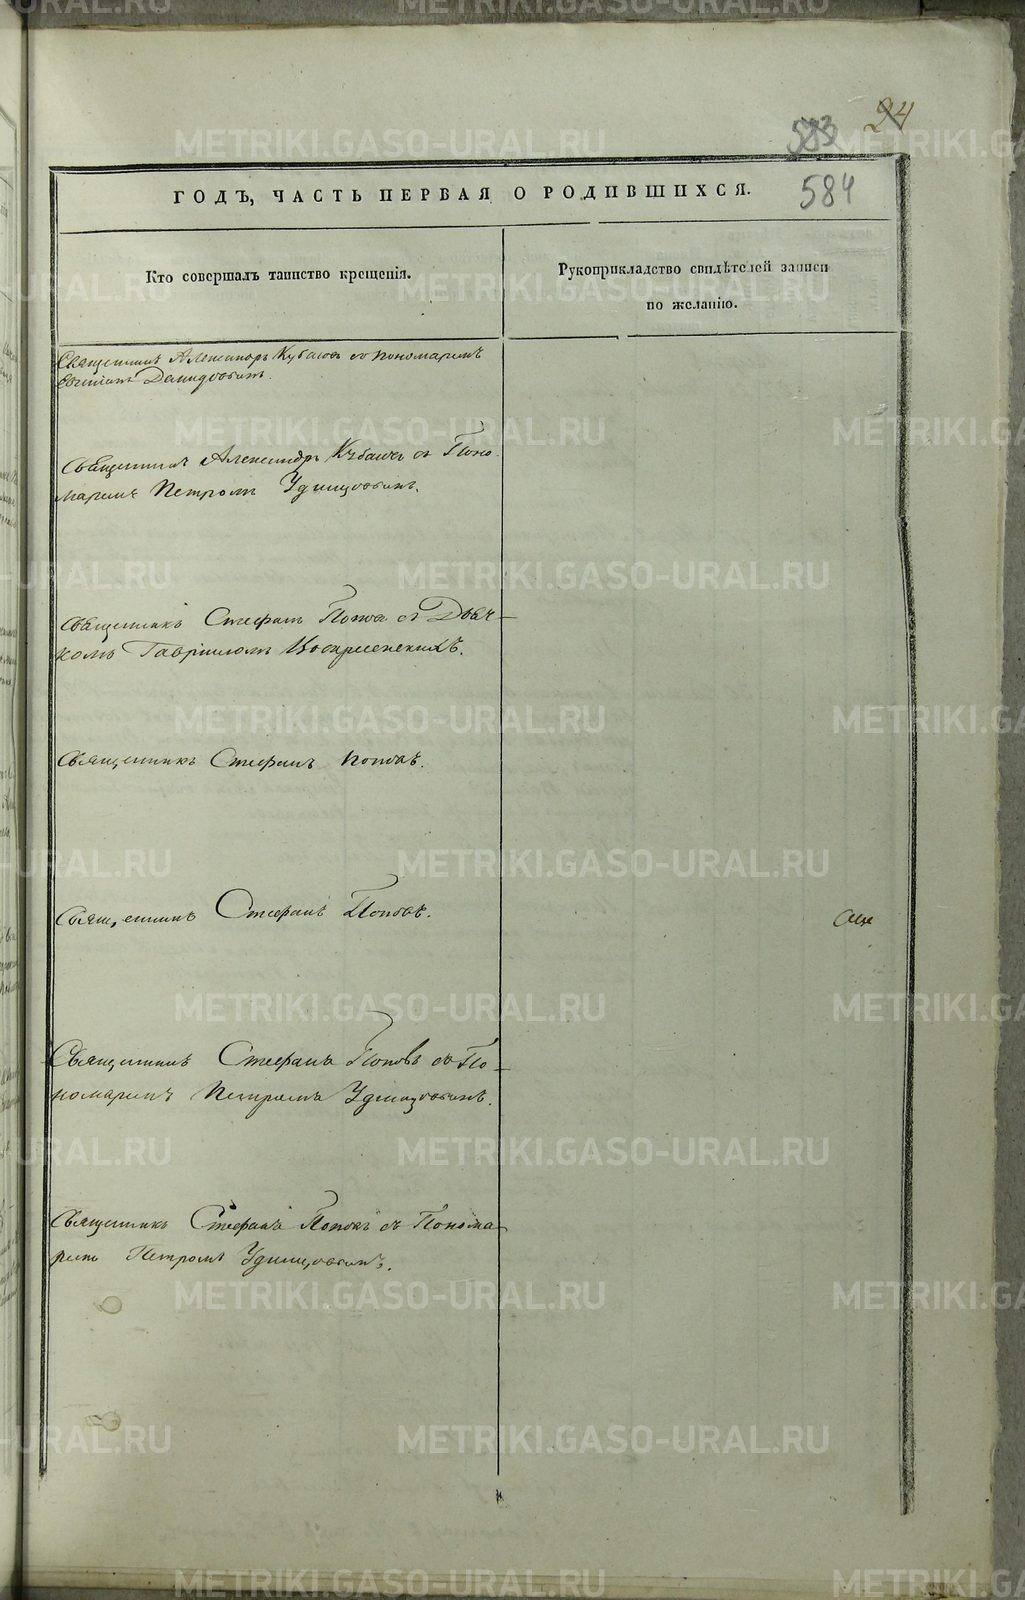 24
583
584
ГОДЪ, ЧАСТЬ ПЕРВАЯ О РОДИВШИХСЯ.
Кто совершалъ таинство крещенія.
Рукоприкладство свидѣтелей записи
по желанію.
Священникъ Александръ Кубасовъ съ пономаремъ
Демидовымъ.
Священникъ Александръ съ Поно-
маремъ Петромъ Удинцовымъ.
Священникъ Стефанъ Поповъ съ Дьяч-
комъ Гавріиломъ Воскресенскимъ.
Священникъ Стефанъ Поповъ.
Священникъ Стефанъ Поповъ.
Священникъ Стефанъ Поповъ съ По-
номаремъ Петромъ Удинцовымъ.
Священникъ Стефанъ Поповъ съ Понома-
ремъ Петромъ Удинцовымъ.
METRIKI.GASO-URAL.RU